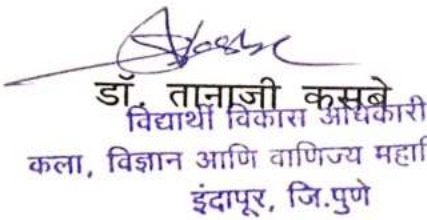 डॉ. तानाजी कसबे
विद्यार्थी विकास अधिकारी
कला, विज्ञान आणि वाणिज्य महावि
इंदापूर, जि.पुणे